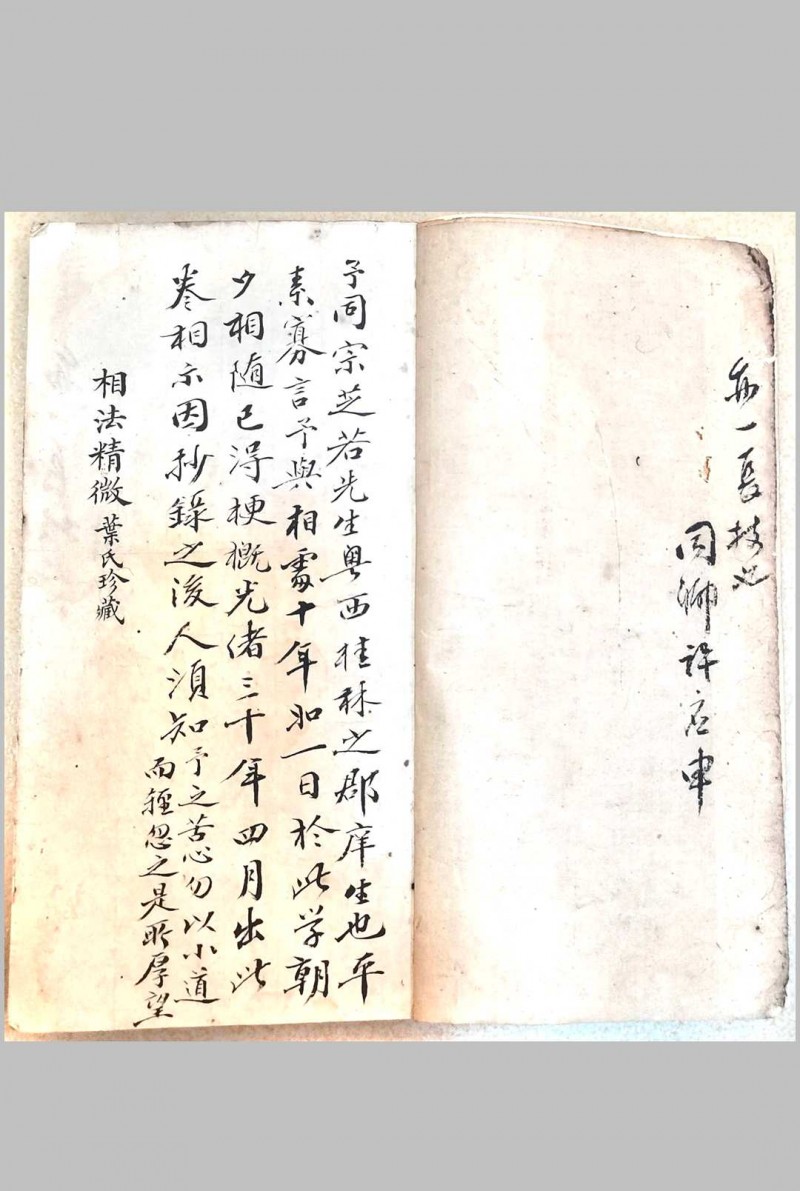 亦一長技也
同鄉許應申
予同宗芝若先生粵西桂林之郡庠生也平
素寡言予與相處十年如一日於此学朝
夕相随已得梗概光绪三十年四月出此
卷相示因抄錄之後人須知予之苦心勿以小道
而輕忽之是所厚望
相法精微 葉氏珍藏